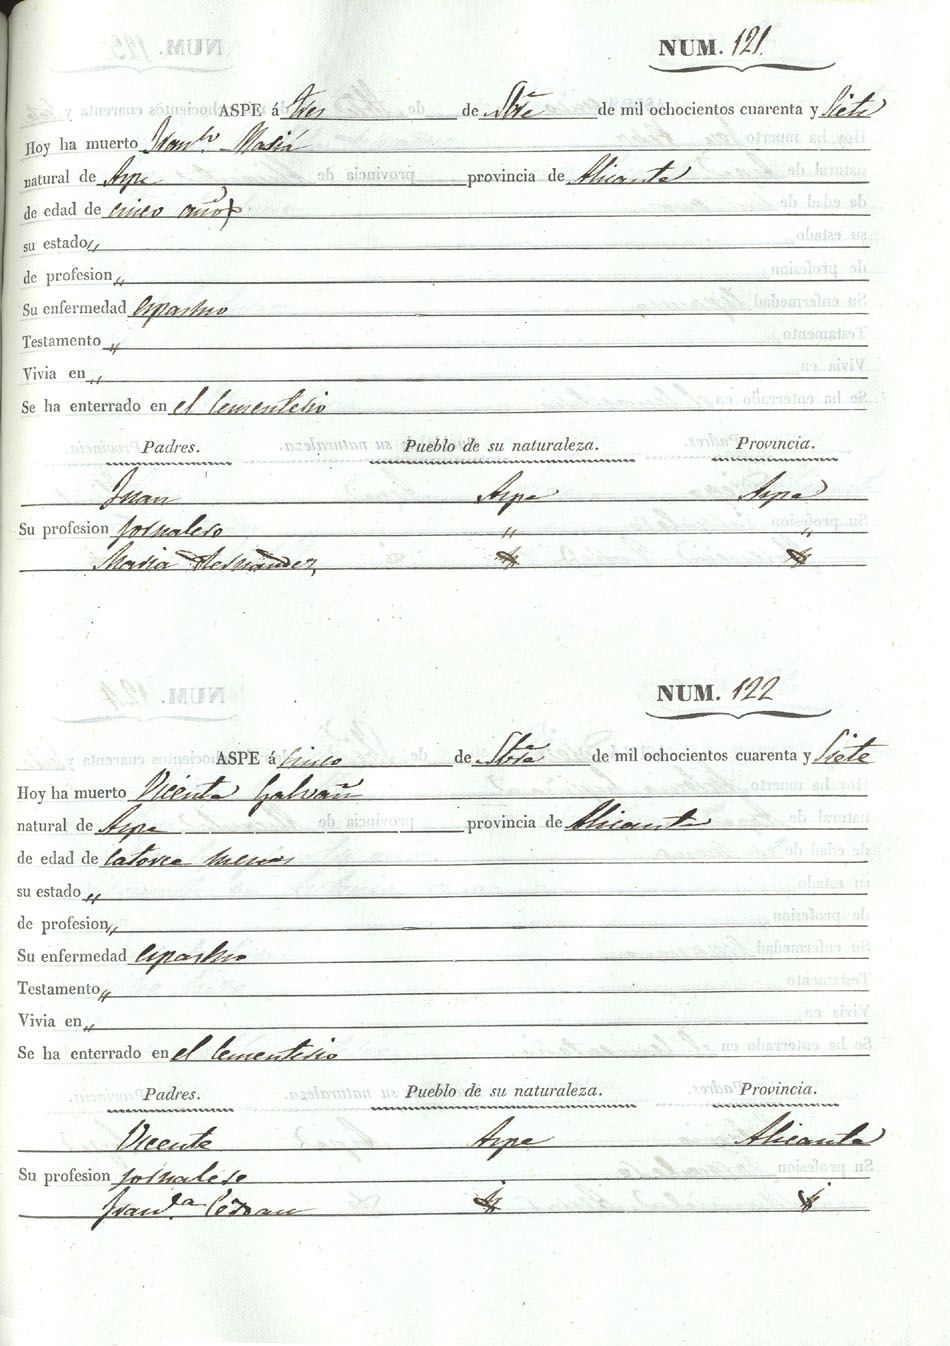 NUM. 121.
ASPE á tres de Sbre de mil ochocientos cuarenta y Siete
Hoy ha muerto Fran.co Masiá
natural de Aspe provincia de Alicante
de edad de cinco años
su estado "
de profesion "
Su enfermedad espasmo
Testamento "
Vivia en "
Se ha enterrado en el Cementerio
Padres. Pueblo de su naturaleza. Provincia.
Juan Aspe Aspe
Su profesion jornalero " "
Maria Hernandez
NUM. 122
ASPE á cinco de Sbre de mil ochocientos cuarenta y Siete
Hoy ha muerto Vicente Galvañ
natural de Aspe provincia de Alicante
de edad de catorce meses
su estado "
de profesion "
Su enfermedad espasmo
Testamento "
Vivia en "
Se ha enterrado en el Cementerio
Padres. Pueblo de su naturaleza. Provincia.
Vicente Aspe Alicante
Su profesion jornalero
Fran.ca